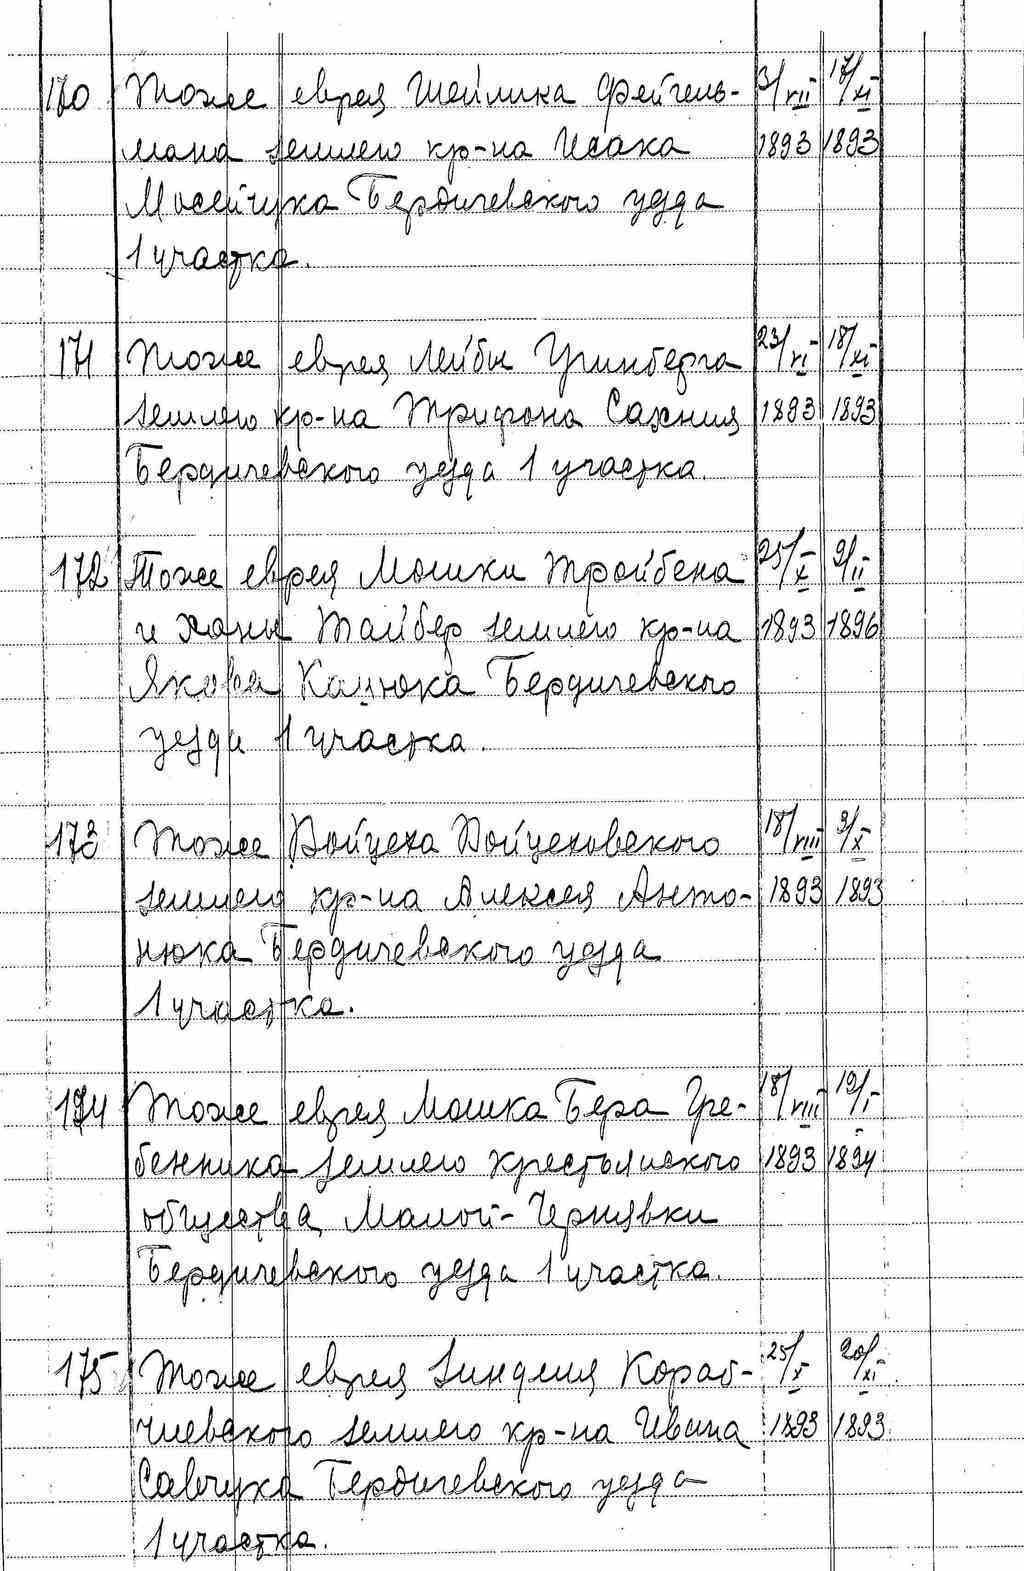 170 Тоже еврея Шейлика Фейгель- 3/VII 17/XI
мана землею кр-на Исака 1893 1893
Мосейчука Бердичевского уезда
1 участка.
171 Тоже еврея Лейбы Гринберга 23/VI 18/XI
землею кр-на Трифона Сахния 1893 1893
Бердичевского уезда 1 участка.
172 Тоже еврея Мошки Тройбена 25/X 9/II
и Ханы Тайбер землею кр-на 1893 1896
Якова Кацюка Бердичевского
уезда 1 участка.
173 Тоже Войцеха Войцеховского 18/VIII 9/X
землею кр-на Алексея Анто- 1893 1893
нюка Бердичевского уезда
1 участка.
174 Тоже еврея Мошка Бера Гре- 18/VIII 19/I
бенника землею крестьянского 1893 1894
общества Малой-Чернявки
Бердичевского уезда 1 участка.
175 Тоже еврея Зинделия Кораб- 25/X 20/XI
чиевского землею кр-на Ивана 1893 1893
Савчука Бердичевского уезда
1 участка.